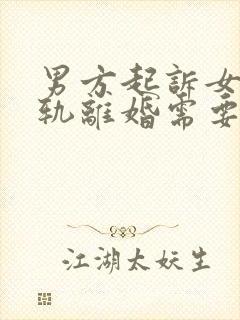 男方起訴女
軌離婚需要
江湖太妖生